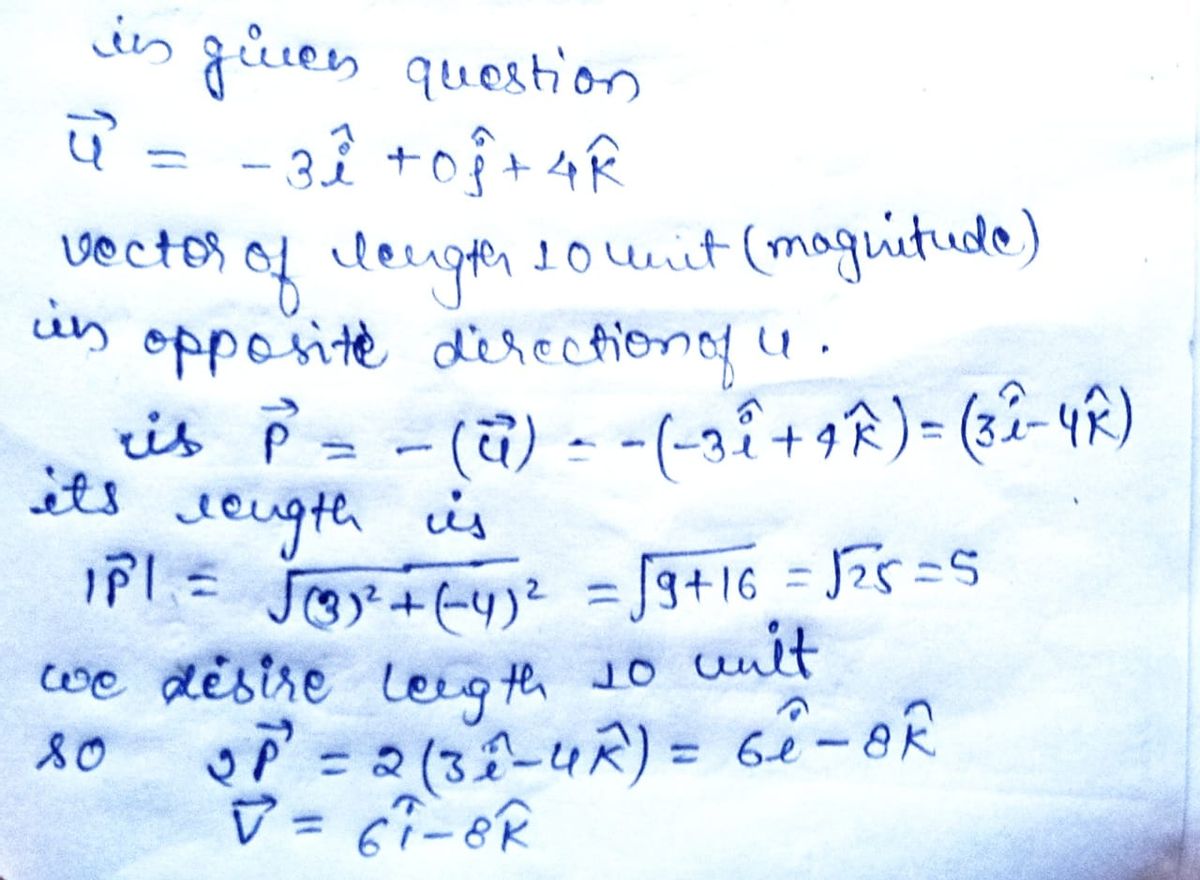 in given question
u⃗ = -3î + 0ĵ + 4k̂
vector of length 10 unit (magnitude)
in opposite direction of u.
is p⃗ = -(u⃗) = -(-3î + 4k̂) = (3î - 4k̂)
its length is
|p⃗| = √(3)² + (-4)² = √9+16 = √25 = 5
we desire length 10 unit
so 2p⃗ = 2(3î - 4k̂) = 6î - 8k̂
v⃗ = 6î - 8k̂